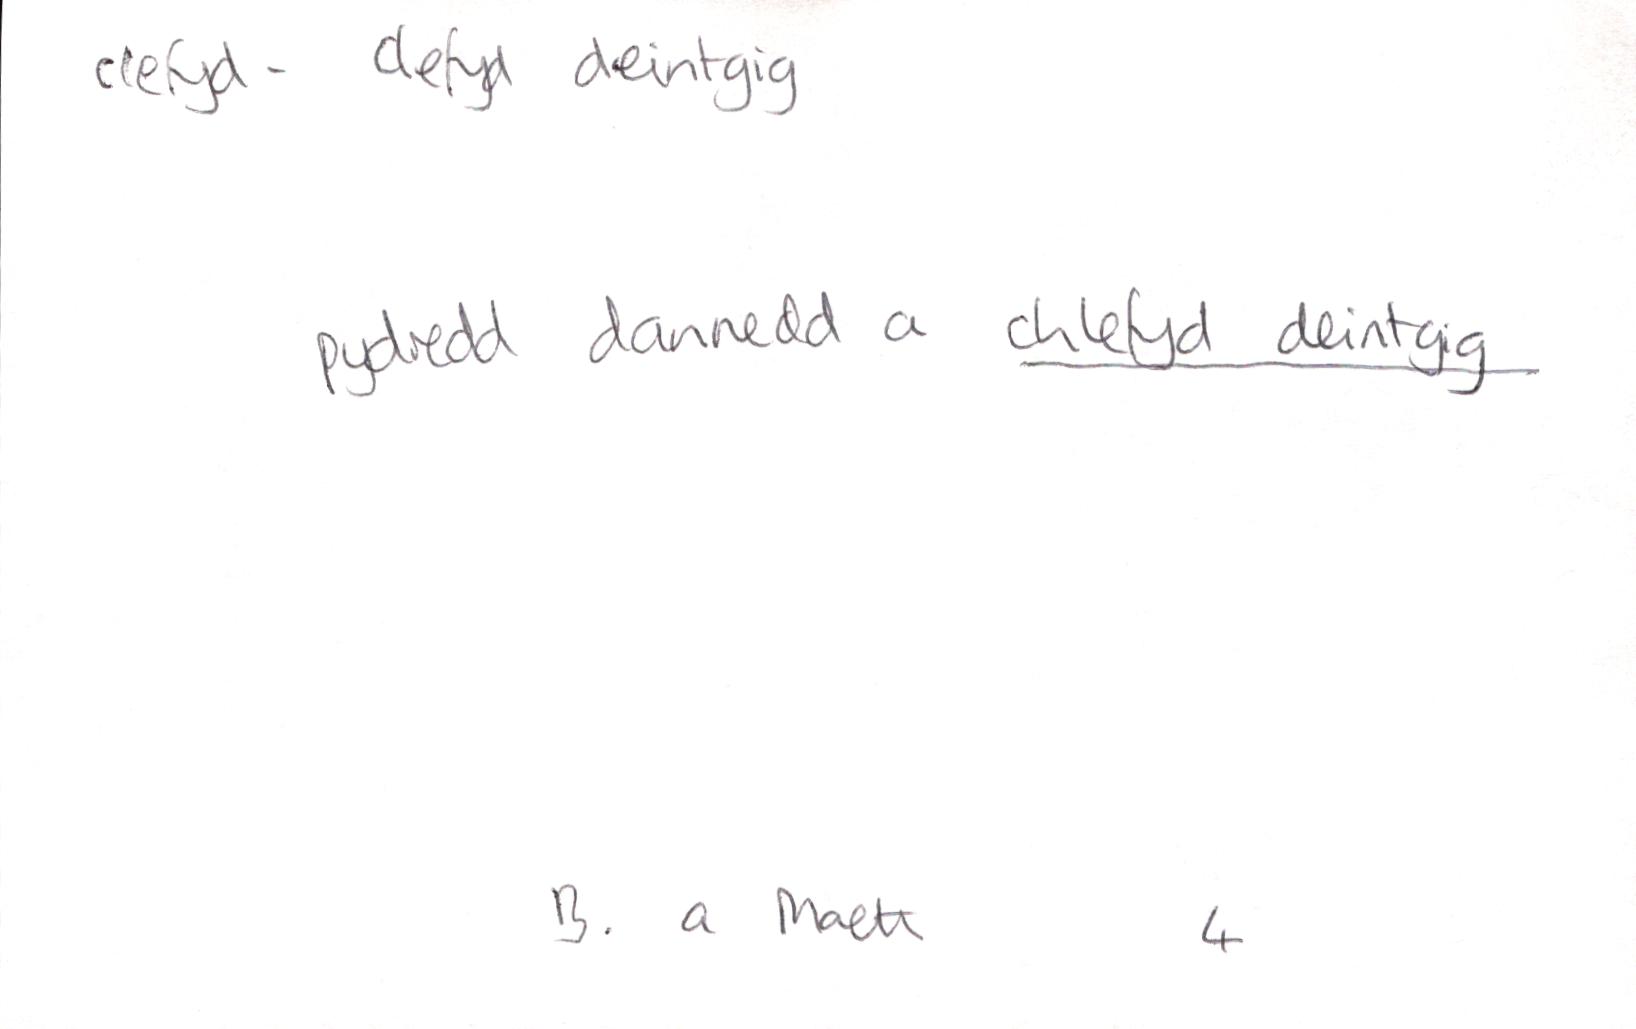 clefyd - clefyd deintgig
pydredd dannedd a chlefyd deintgig
B. a Maeth 4